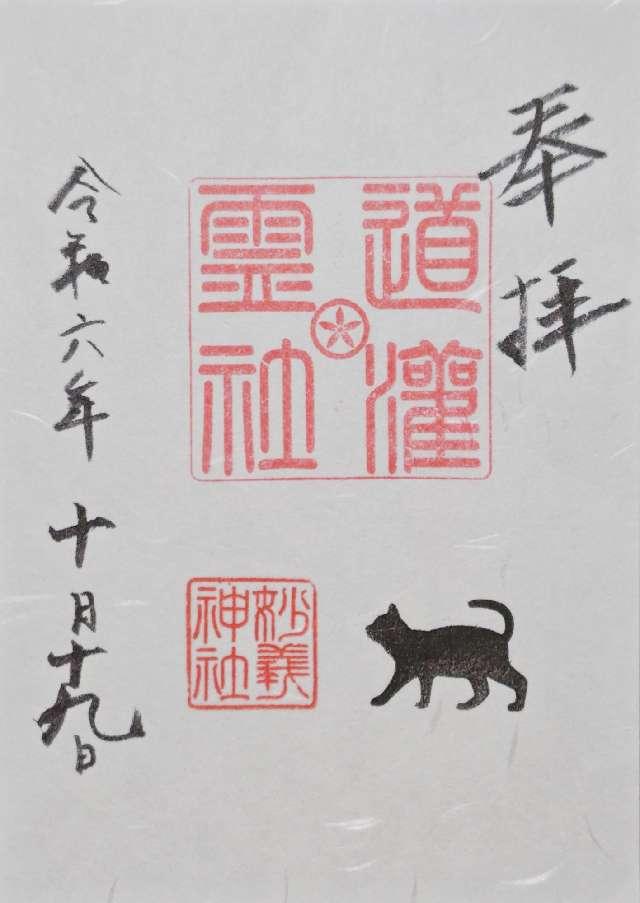 奉拝
道灌
霊社
妙義
神社
令和六年 十月十九日